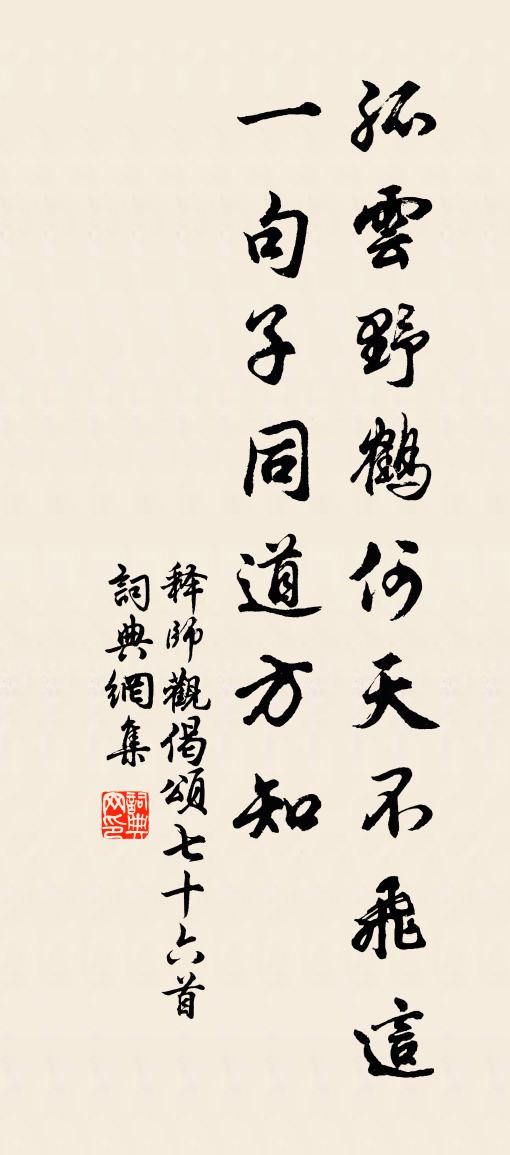 孤雲野鶴何天不飛這
一句子同道方知
释師觀偈頌七十六首
詞典網集
詞典網印